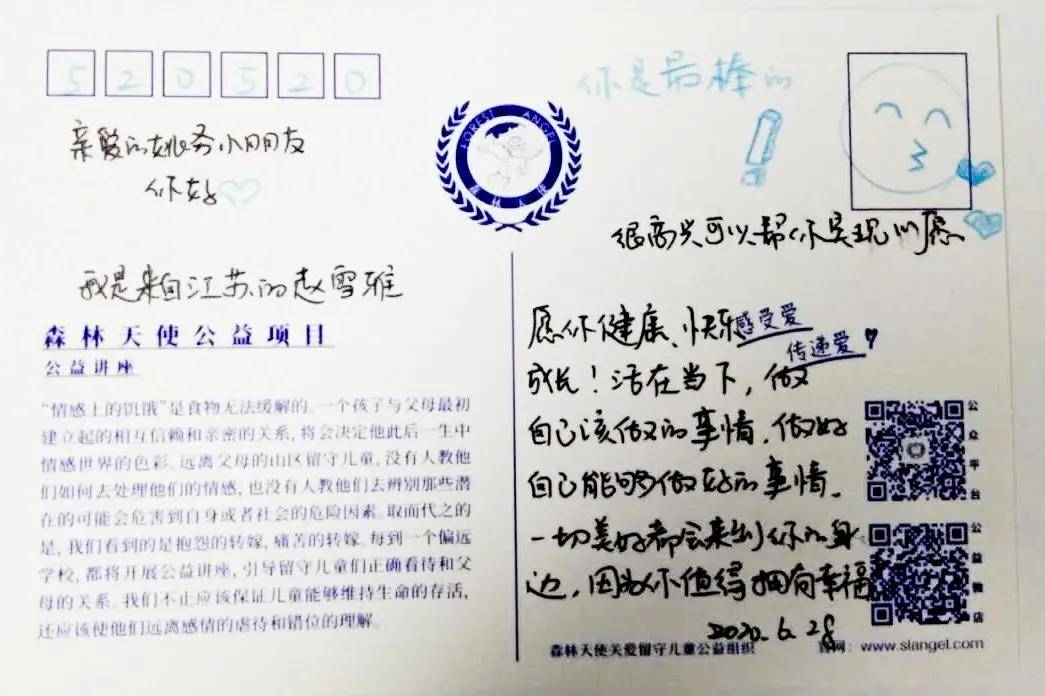 520520
你是最棒的
!
FOREST ANGEL
森林天使
亲爱的姚务小朋友
你好
很高兴可以帮你实现心愿
我是来自江苏的赵雪雅
森林天使公益项目
公益讲座
“情感上的饥饿”是食物无法缓解的。一个孩子与父母最初
建立起的相互信赖和亲密的关系，将会决定他此后一生中
情感世界的色彩。远离父母的山区留守儿童，没有人教他
们如何去处理他们的情感，也没有人教他们去辨别那些潜
在的可能会危害到自身或者社会的危险因素。取而代之的
是，我们看到的是抱怨的转嫁，痛苦的转嫁。每到一个偏远
学校，都将开展公益讲座，引导留守儿童们正确看待和父
母的关系。我们不止应该保证儿童能够维持生命的存活，
还应该使他们远离感情的虐待和错位的理解。
愿你健康、快乐感受爱
传递爱
成长！活在当下，做
自己该做的事情，做好
自己能够做好的事情。
一切美好都会来到你的身
边，因为你值得拥有幸福
2020.6.28
公众平台
公益微店
森林天使关爱留守儿童公益组织
官网：www.slangel.com